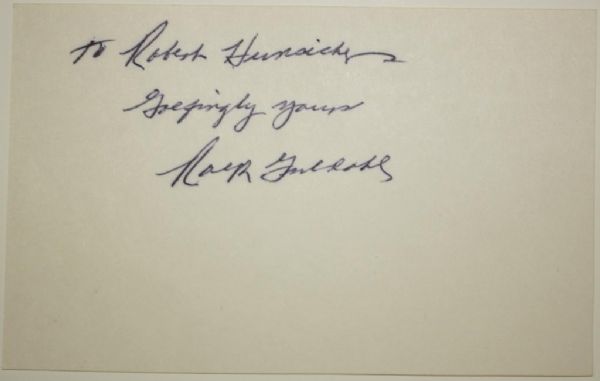 To Robert Hunsicker
Golfingly yours
Ralph Guldahl